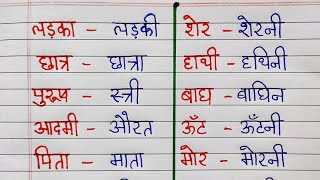 लड़का - लड़की
छात्र - छात्रा
पुरूष - स्त्री
आदमी - औरत
पिता - माता
शेर - शेरनी
हाथी - हथिनी
बाघ - बाघिन
ऊँट - ऊँटनी
मोर - मोरनी